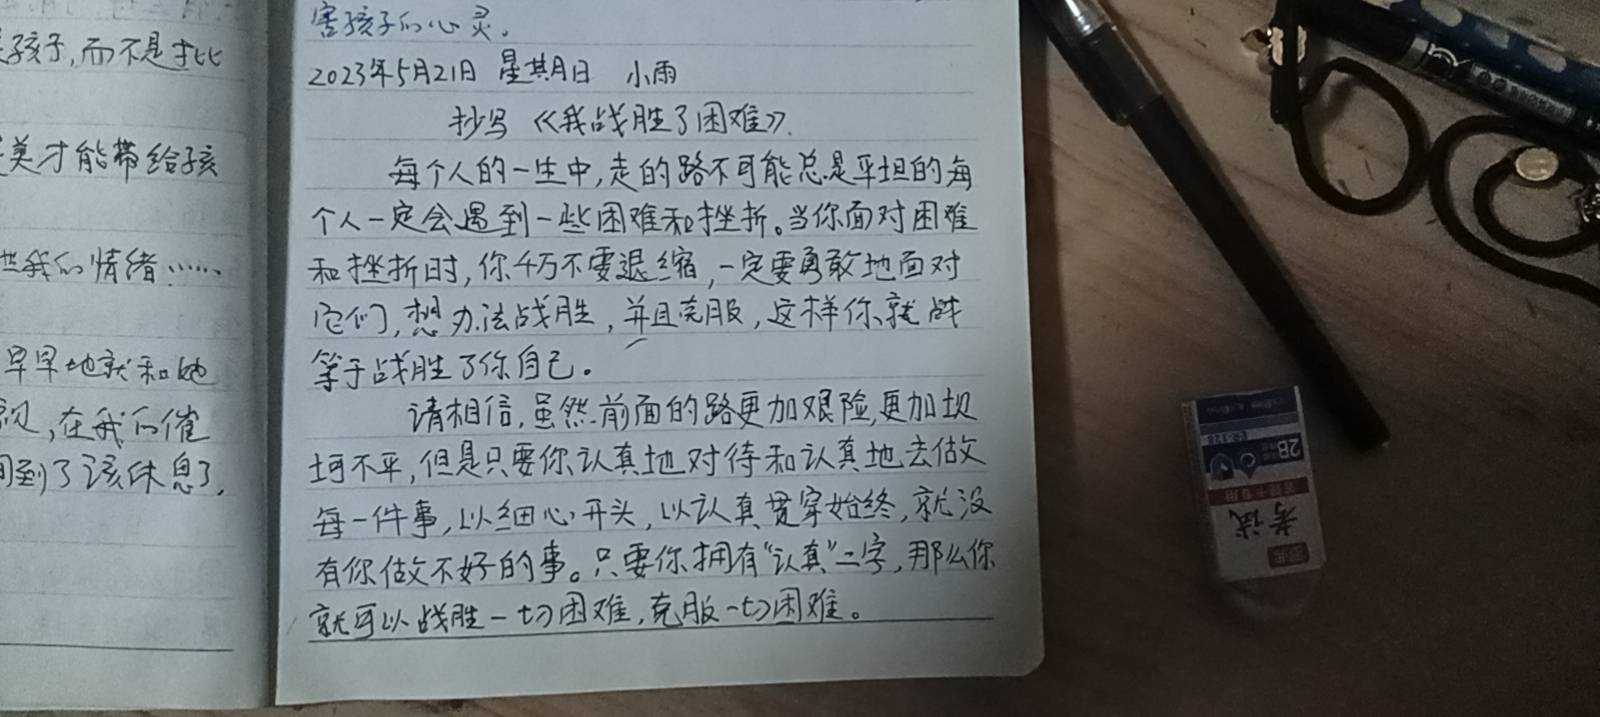 孩子,而不是扌比
美才能带给孩
我的情绪……
早早地就和她
,在我的催
到了该休息了,
害孩子的心灵。
2023年5月21日 星期日 小雨
抄写《我战胜了困难》.
每个人的一生中,走的路不可能总是平坦的每
个人一定会遇到一些困难和挫折。当你面对困难
和挫折时,你千万不要退缩,一定要勇敢地面对
它们,想办法战胜,并且克服,这样你就战
等于战胜了你自己。
请相信,虽然前面的路更加艰险,更加坎
坷不平,但是只要你认真地对待和认真地去做
每一件事,以细心开头,以认真贯穿始终,就没
有你做不好的事。只要你拥有“认真”二字,那么你
就可以战胜一切困难,克服一切困难。
2B
考试